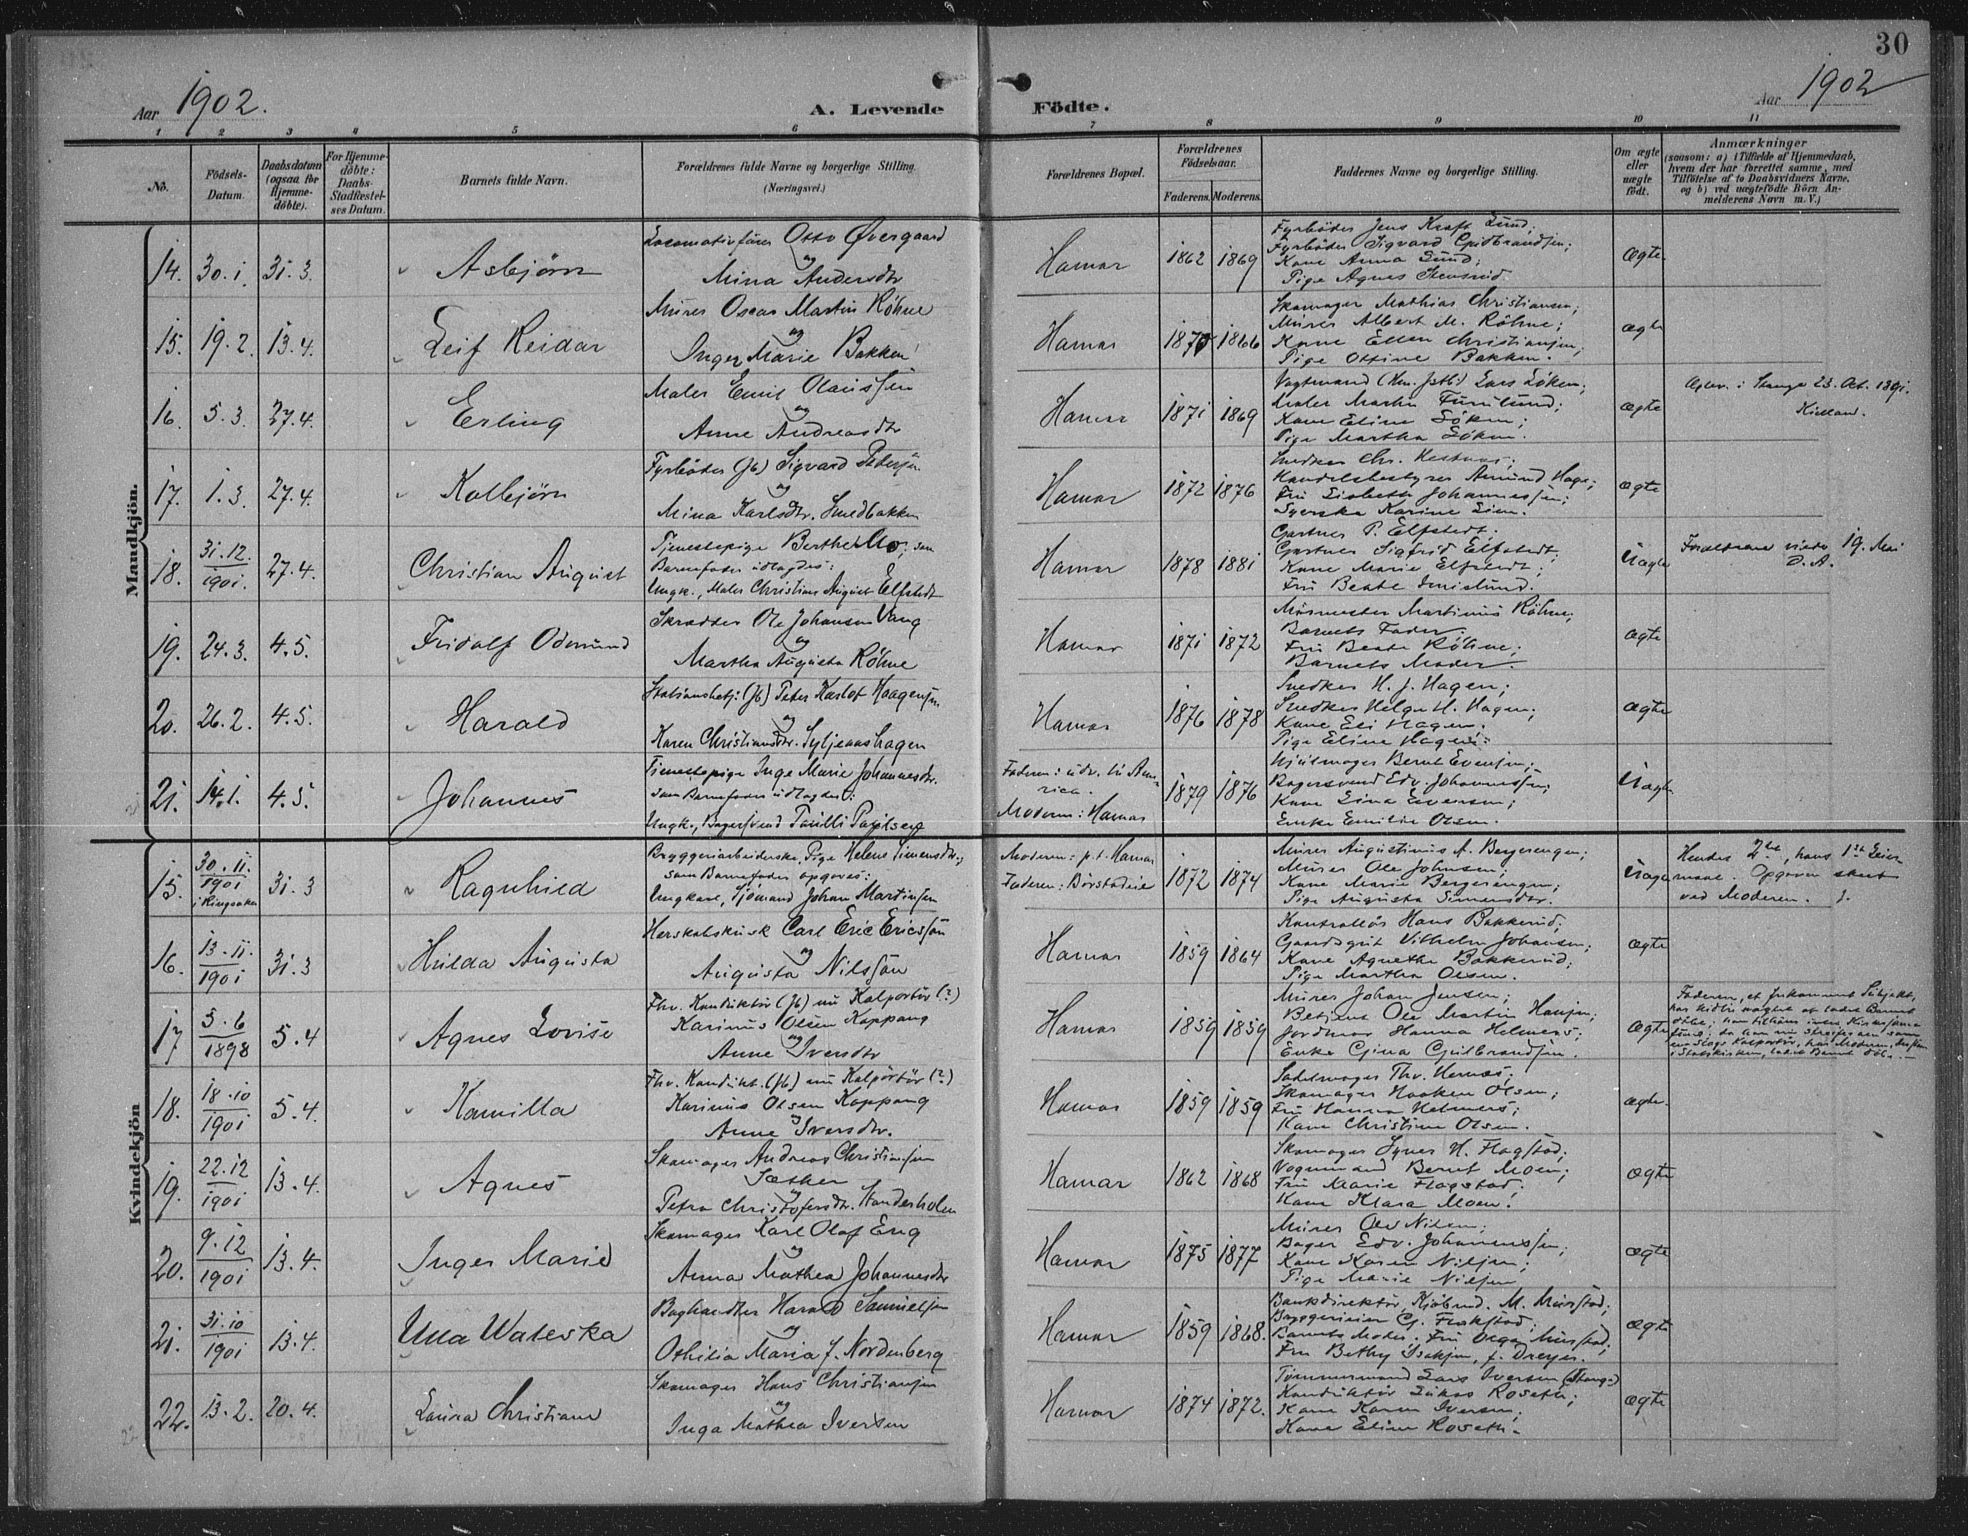 30
Aar 1902. A. Levende Födte. Aar 1902
1 2 3 4 5 6 7 8 9 10 11
No. Födsels-Datum. Daabsdatum (ogsaa for Hjemmedöbte). For Hjemmedöbte: Daabs-Stadfæstelses Datum. Barnets fulde Navn. Forældrenes fulde Navne og borgerlige Stilling. (Næringsvei.) Forældrenes Bopæl. Forældrenes Födselsaar. Faderens. Moderens. Faddernes Navne og borgerlige Stilling. Om ægte eller uægte födt. Anmærkninger (saasom: a) i Tilfælde af Hjemmedaab, hvem der har forrettet samme, med Tilföielse af to Daabsvidners Navne, og b) ved uægtefödte Börn Anmelderens Navn m. V.)
Mandkjön.
14. 30.1. 31.3. Asbjörn
Locomotivförer Otto Övergaard
og
Mina Andersdtr
Hamar 1862 1869
Fyrböder Jens Kraft Lund;
Fyrböder Sigvard Guldbrandsen;
Kone Anna Lund;
Pige Agnes Stensrud
ægte
15. 19.2. 13.4. Leif Reidar
Murer Oscar Martin Röhne
og
Inger Marie Bakken
Hamar 1866
Skomager Mathias Christiansen;
Murer Albert M. Röhne;
Kone Ellen Christiansen;
Pige Ottine Bakken.
ægte
16. 5.3. 27.4. Erling
Maler Emil Olaussen
og
Anne Andreasdtr
Hamar 1871 1869
Lars Löken;
Maler Martin Furulund;
Kone Eline Löken;
Pige Martha Löken.
ægte
17. 1.3. 27.4. Kolbjörn
Fyrböder (Jb) Sigvard Pedersen
og
Mina Karlsdtr. Smedbakken
Hamar 1872 1876
Snedker Chr. Hestnæs;
Handelsbestyrer Amund Hage;
Fru Lisbeth Johannessen;
Syerske Karine Lien.
ægte
18. 31.12. 1901. 27.4. Christian August
Tjenestepige Berthe Mo; som
Barnefader udlagdes:
Ungk., Maler Christian August Elfstedt
Hamar 1878 1881
Gartner P. Elfstedt;
Gartner Sigfrid Elfstedt;
Kone Marie Elfstedt;
Fru Beate Smislund.
Uægte
Forældrene viede 19. Mai
D. A.
19. 24.3. 4.5. Fridolf Odmund
Skrædder Ole Johansen Vang
og
Martha Augusta Röhne
Hamar 1871 1872
Murmester Martinus Röhne;
Barnets Fader;
Fru Beate Röhne;
Barnets Moder.
ægte
20. 26.2. 4.5. Harald
Stationsbetj. (Jb) Peter Karlot Haagensen
og
Karen Christiansdtr. Syljeaashagen
Hamar 1876 1878
Snedker H. J. Hagen;
Snedker Helge H. Hagen;
Kone Eli Hagen;
Pige Eline Hagen.
ægte
21. 14.1. 4.5. Johannes
Tjenestepige Inge Marie Johannesdtr.
som Barnefader udlagdes:
Ungk., Bagersvend
Faderen: udv. til Amerika.
Moderen: Hamar
1879 1876
Hjulmager Bernt Evensen;
Bagersvend Edv. Johannessen;
Kone Lina Evensen;
Enke Emilie Olsen.
Uægte
Kvindekjön
15. 30.11. 1901 i Ringsaker 31.3 Ragnhild
Bryggeriarbeiderske, Pige Helene Simensdtr.;
som Barnefader opgaves:
Ungkarl, Sjömand Johan Martinsen
Moderen: p.t. Hamar
Faderen:
1872 1874
Murer Augustinus A. Bergerengen;
Murer Ole Johnsen;
Kone Marie Bergerengen;
Pige Augusta Simensdtr.
Uægte
Hendes 2det, hans 1ste Leiermaal. Opgaven skeet
ved Moderen.
16. 13.11. 1901 31.3 Hilda Augusta
Herskabskusk Carl Eric Ericsson
og
Augusta Nilsson
Hamar 1859 1864
Kontrollör Hans Bakkerud;
Gaardsgut Vilhelm Johansen;
Kone Agnethe Bakkerud;
Pige Martha Olsen.
ægte
17 5.6 1898 5.4 Agnes Lovise
Fhv. Konduktör (Jb) nu Kolportör (?)
Karinus Olsen Koppang
og
Anne Iversdtr
Hamar 1859 1859
Murer Johan Jensen;
Betjent Ole Martin Hansen;
Jordmor Hanna Helmers;
Enke Gina Gulbrandsen.
ægte
18. 18.10 1901 5.4. Kamilla
Fhv. Kondukt. (Jb) nu Kolportör (?)
Karinus Olsen Koppang
og
Anne Iversdtr.
Hamar 1859 1859
Sadelmager Thv. Hernæs;
Skomager Haaken Olsen;
Fru Hanna Helmers;
Kone Christine Olsen.
ægte.
19. 22.12 1901 13.4. Agnes
Skomager Andreas Christiansen
Sæther
og
Petra Christofersdtr. Sanderholen
Hamar 1862 1868
Skomager Syver H. Flagstad;
Vognmand Bernt Moen;
Fru Marie Flagstad;
Kone Klara Moen.
ægte
20. 9.12 1901 13.4. Inger Marie
Skomager Karl Olaf Eng
og
Anna Mathea Johannesdtr
Hamar 1875 1877
Murer Ole Nilsen;
Bager Edv. Johannessen;
Kone Karen Nilsen;
Pige Marie Nilsen
ægte
21. 31.10 1901 13.4. Ulla Waleska
Boghandler Harald Samuelsen
og
Othilia Maria J. Nordenberg
Hamar 1859 1868.
Bankdirektör, Kjöbmd. M. Mustad;
Barnets Moder. Fru Olga Mustad;
Fru Bethy Isaksen, f. Dreyer.
ægte
22. 13.2. 20.4. Laura Christiane
Skomager Hans Christiansen
og
Inga Mathea Iversen
Hamar 1874 1872.
Tömmermand Lars Iversen (Stange)
Konduktör Lukas Roseth;
Kone Karen Iversen;
Kone Eline Roseth.
ægte